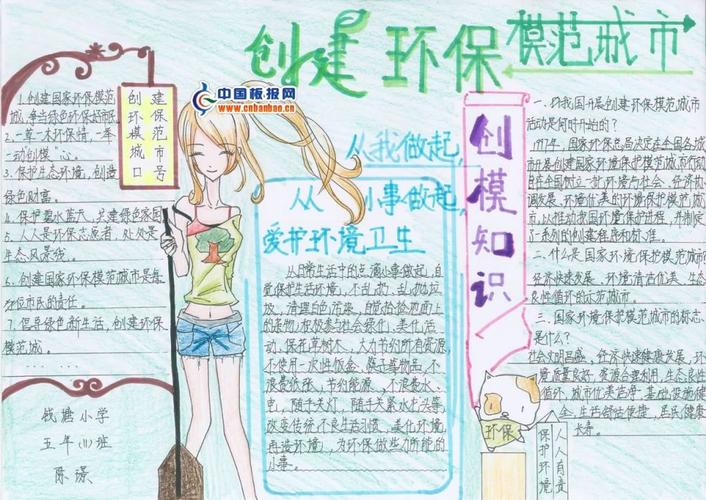 创建环保模范城市
中国板报网
www.cnbanbao.cn
创建
环保
模范
城市
口号
1.创建国家环保模范
城,争当绿色环保好市民。
2.一草一木环保情,一举
一动"创模"心。
3.保护生态环境,创造
绿色财富。
4.保护碧水蓝天,共建绿色家园
5.人人是环保志愿者,处处是
生态风景线。
6.创建国家环保模范城市是每
一位市民的责任。
7.倡导绿色新生活,创建环保
模范城。
钱塘小学
五年(11)班
陈
从我做起,
从小事做起,
爱护环境卫生
从日常生活中的点滴小事做起,自
觉保护生活环境,不乱扔、乱抛垃
圾,清理白色污染,自觉捡拾地面上
的杂物;积极参与社会绿化、美化活
动,保花草树木,大力节约所有资源,
不使用一次性饭盒、筷子等物品,不
浪费纸张,节约能源,不浪费水、
电,随手关灯,随手关紧水龙头等,
改变传统不良生活习惯,美化环境
再造环境,为环保做些力所能的
小事。
创模知识
一、我国开展创建环保模范城市
活动是何时开始的?
1997年,国家环保总局决定在全国各城
市开展创建国家环境保护模范城市活动
旨在全国树立一批环境与社会、经济协
调发展,环境优美的环境保护模范城
市,以推动我国环境保护进程,并制定
了一系列的创建程序和标准。
二、什么是国家环境保护模范城市
经济快速发展、环境清洁优美、生态
良性循环的示范城市。
三、国家环境保护模范城市的标志
是什么?
社会文明昌盛,经济快速健康发展,环
境质量良好,资源合理利用,生态良性
循环,城市优美洁净,基础设施健
全,生活舒适便捷,居民健康
长寿。
环保
保护环境
人人有责